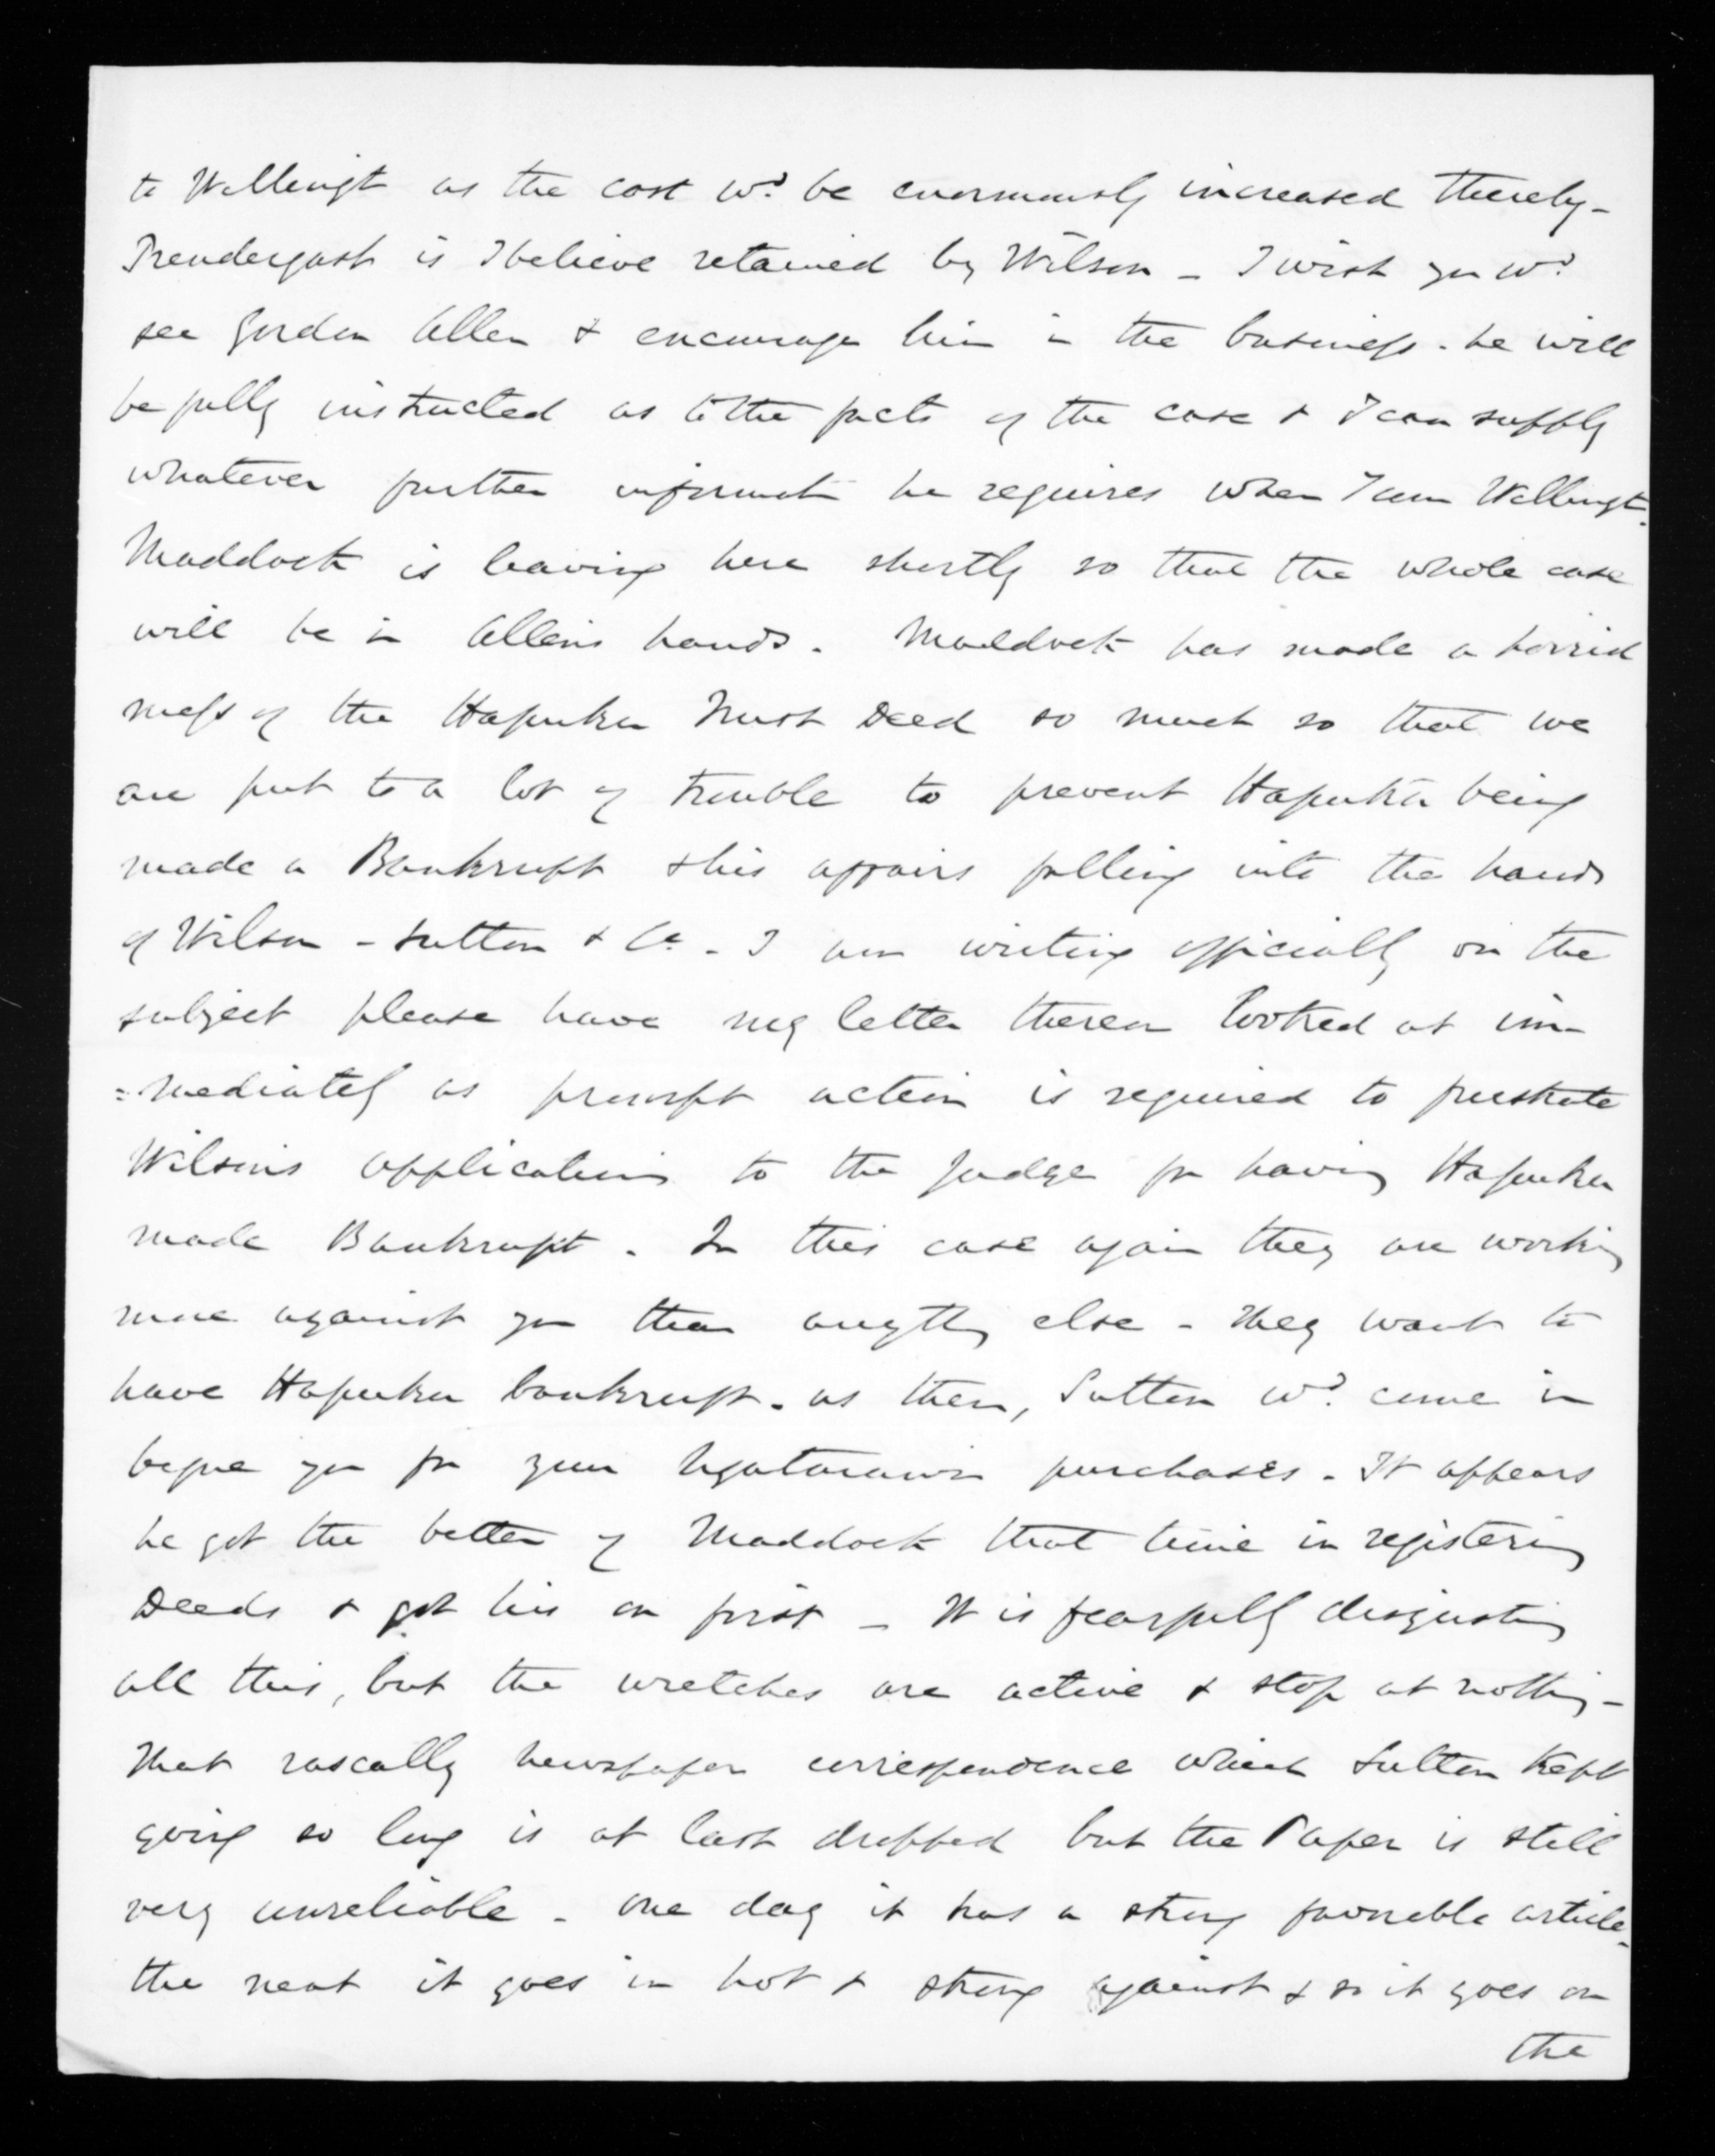 to Wellingt as the cost wd. be enormously increased thereby -
Prendergast is I believe retained by Wilson - I wish you wd.
see Gordon Allen & encourage him in the business. he will
be fully instructed as to the facts of the case & I can supply
whatever further informatn he requires when I am Wellingt.
Maddock is leaving here shortly so that the whole case
will be in Allens hands. Maddock has made a horrid
mess of the Hapuku Trust Deed so much so that we
are put to a lot of trouble to prevent Hapuku being
made a Bankrupt & his affairs falling into the hands
of Wilson - Sutton & Co. - I am writing officially on the
subject please have my letter thereon looked at im-
=mediately as prompt action is required to frustrate
Wilson's application to the Judge for having Hapuku
made Bankrupt. In this case again they are working
more against you than anythg else - they want to
have Hapuku bankrupt. as then, Sutton wd. come in
before you for your Ngatarawa purchases. It appears
he got the better of Maddock that time in registering
Deeds & got his on first - It is fearfully disgusting
all this, but the wretches are active & stop at nothing -
That rascally newspaper correspondence which Sutton kept
going so long is at last dropped but the Paper is still
very unreliable - one day it has a strong favorable article -
the next it goes in hot & strong against & so it goes on
the